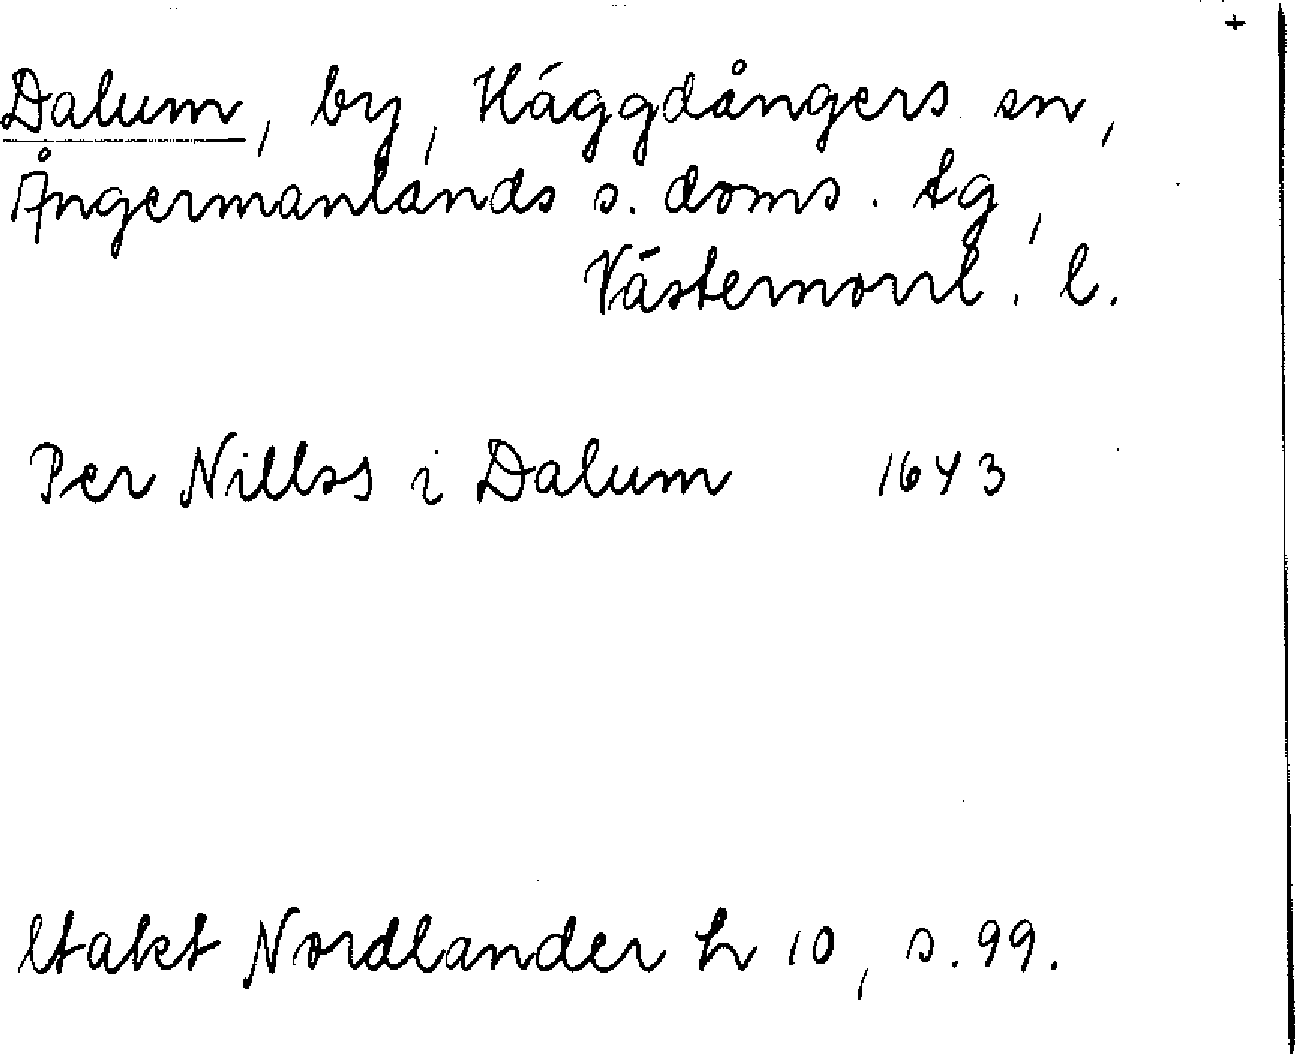 +
Dalum, by, Häggdångers sn,
Ångermanlands s. doms. tg,
Västernorrl. l.
Per Nillss i Dalum 1643
Utakt Nordlander h 10, s. 99.